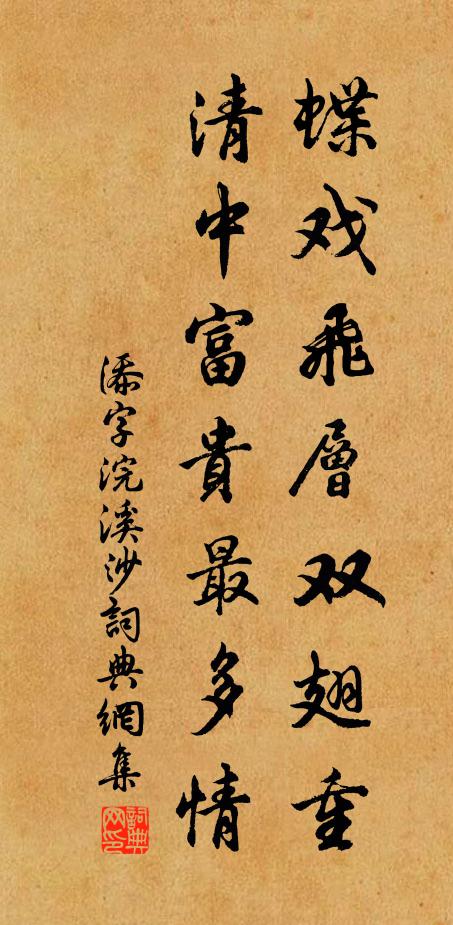 蝶戏飛層双翅重
清中富貴最多情
添字浣溪沙詞典網集
詞典网印